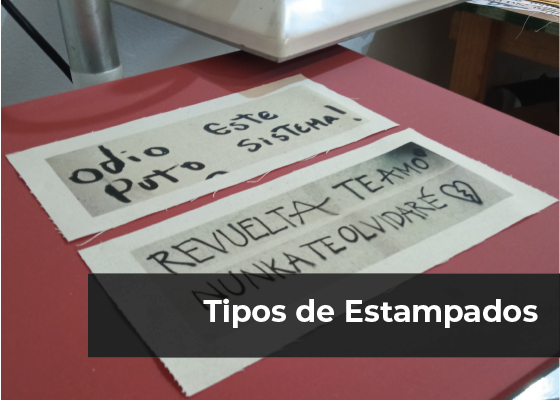 odio este
puto sistema!.
REVUELTA TE AMO
NUNKA TE OLVIDARÉ
Tipos de Estampados